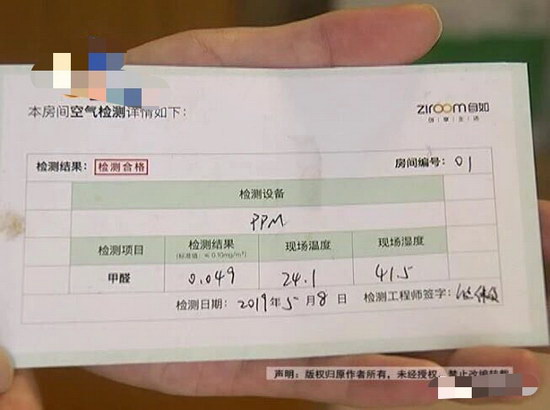 ziroom自如
本房间空气检测详情如下：
检测结果： 检测合格 房间编号： 01
检测设备
PPM
检测项目 检测结果 现场温度 现场湿度
(标准值：≤0.10mg/m³)
甲醛 0.049 24.1 41.5
检测日期： 2019年 5 月 8 日 检测工程师签字：
声明：版权归原作者所有，未经授权，禁止改编转载